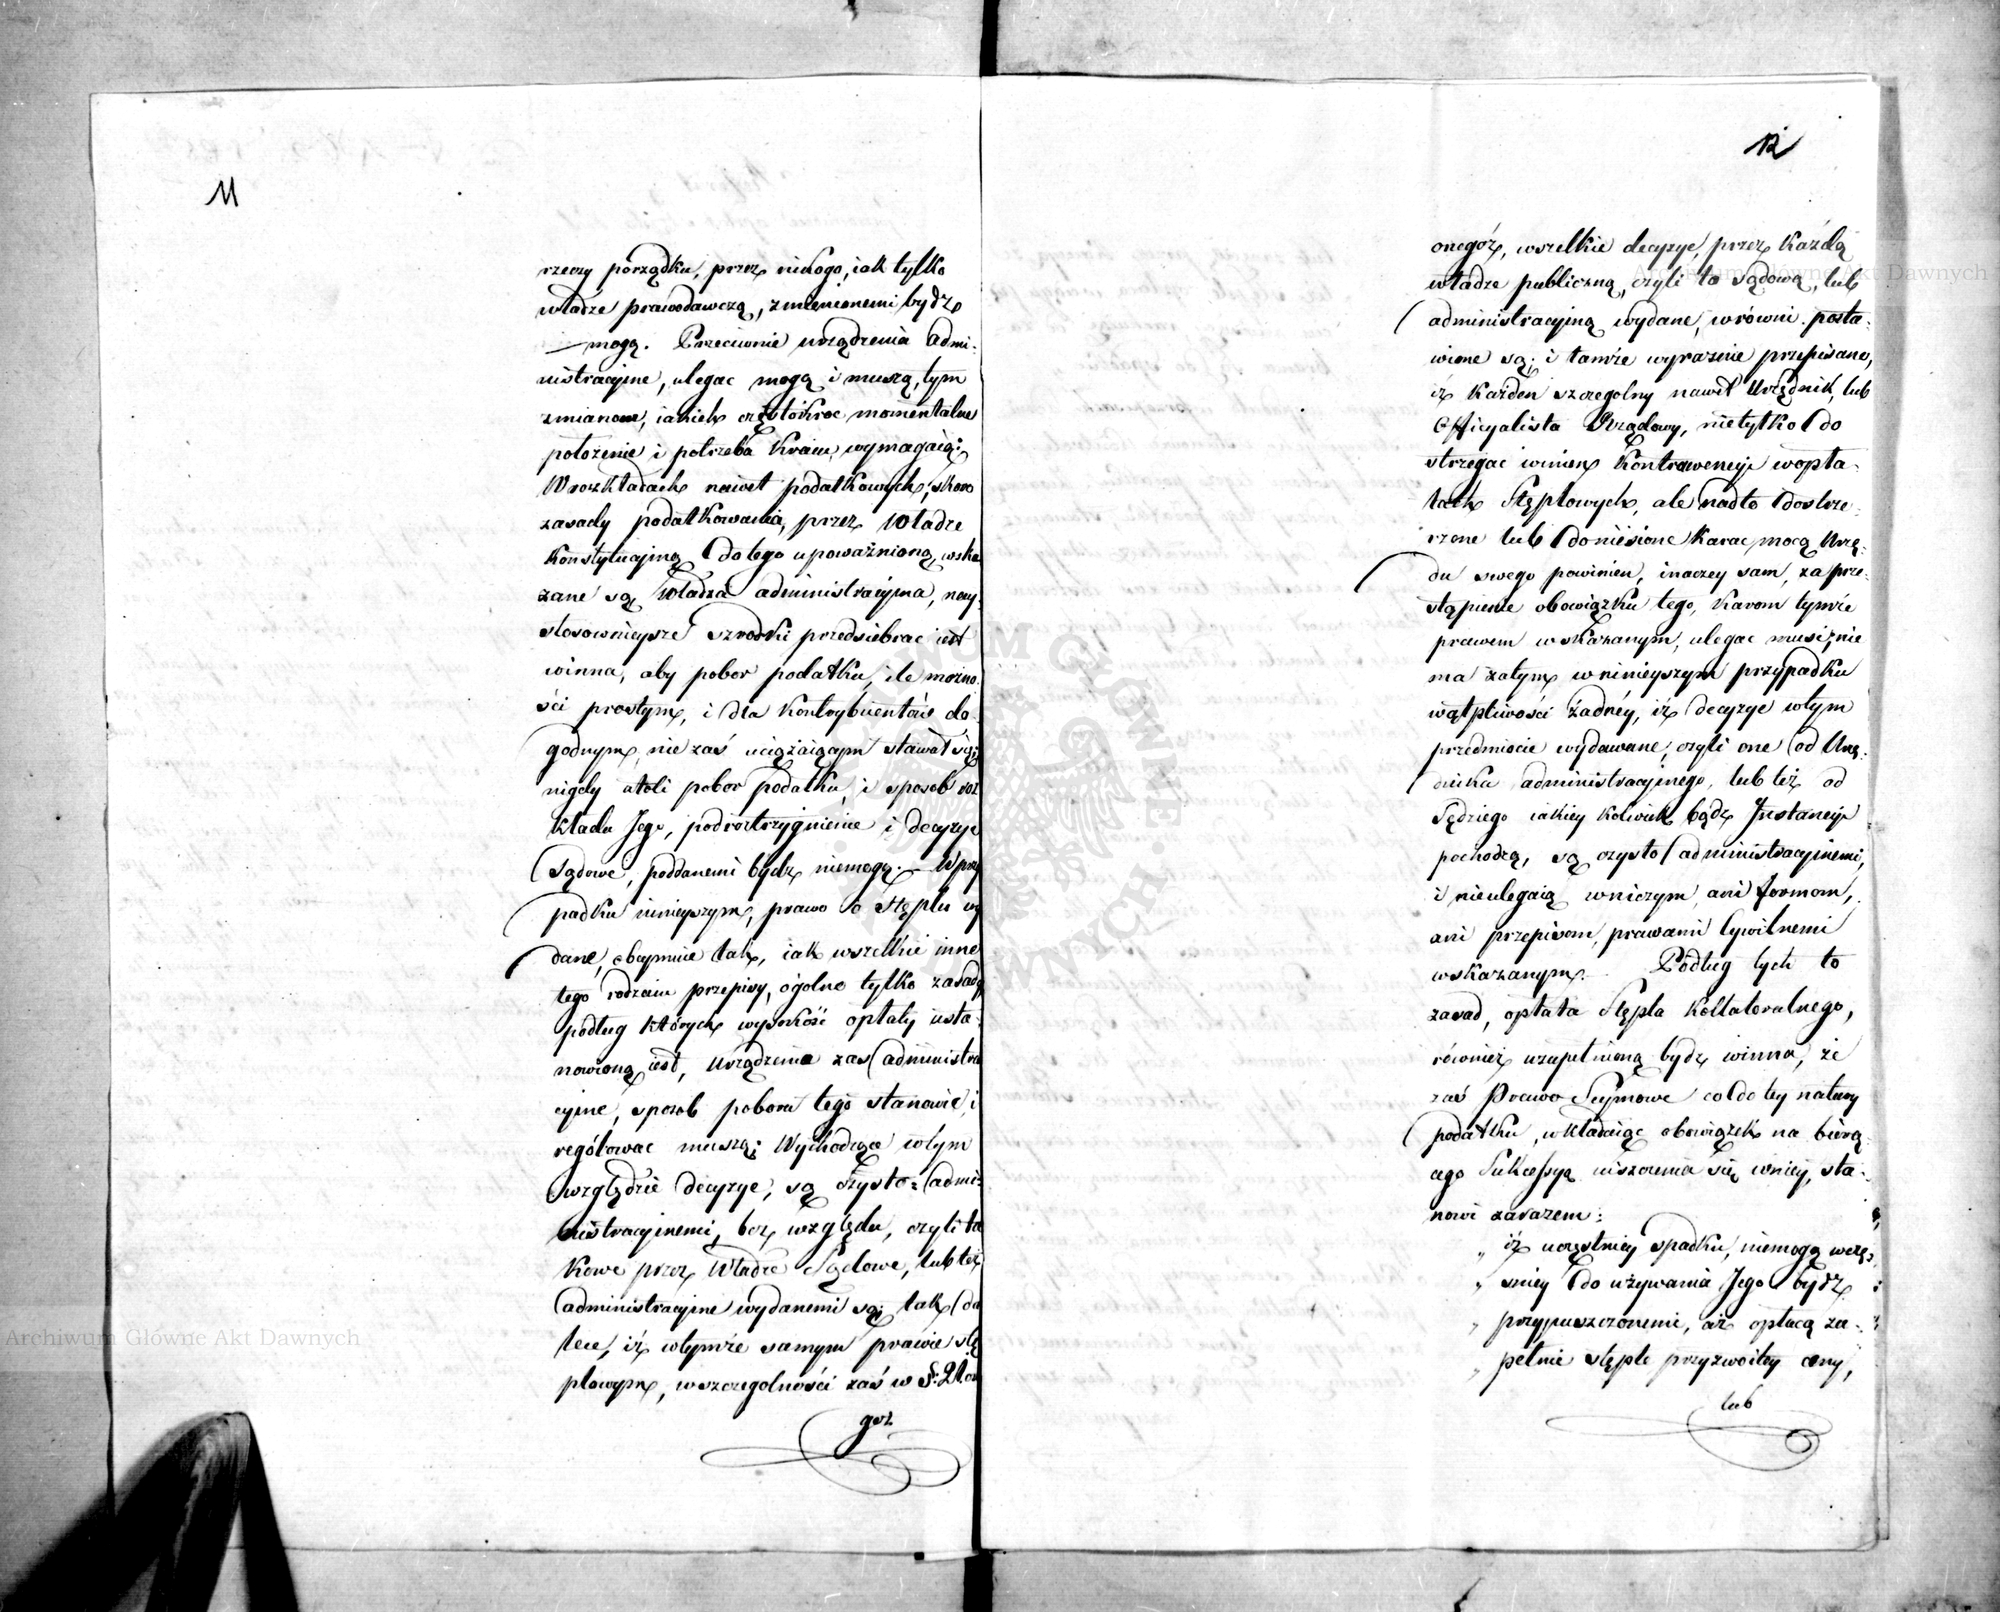 11
rzeczy porządku, przez nikogo, iak tylko
władze prawodawczą, zmienionemi bydz
— mogą. Przeciwnie urządzenia admi-
nistracyjne, ulegac mogą i muszą, tym
zmianom, iakich częstokroc momentalne
położenie i potrzeba Kraiu, wymagaią;
W rozkładach nawet podatkowych, skoro
zasady podatkowania, przez Władze
Konstytucyjną do tego upoważnioną, wska
zane są, Władza administracyjna, nay-
stosownieysze szrodki przedsiebrac iest
winna, aby pobor podatku, ile możno-
ści prostym, i dla Kontrybuentów do-
godnym, nie zaś uciążaiącym stawał się;
nigdy atoli pobor podatku, i sposob roz
kładu Jego, pod roztrzygnienie i decyzye
Sądowe, poddanemi bydz niemogą. — W przy
padku ninieyszym, prawo o stęplu wy
dane, obeymuie tak, iak wszelkie inne
tego rodzaiu przepisy, ogolne tylko zasady
podług których wysokość opłaty usta-
nowioną iest, urządzenia zas administra
cyjne, sposob poboru tego stanowić, i
regulowac muszą; Wychodzące wtym
względzie decyzye, są czysto admi-
nistracyjnemi, bez względu, czyli ta
kowe przez Władze Sądowe, lub też
administracyjne wydanemi są; tak da
lece, iż wtymże samym prawie stę
plowym, wszczegolności zaś w §: 21. on
goż
12
onegóż, wszelkie decyzye, przez każdą
władze publiczną, czyli to Sądową, lub
administracyjną wydane, wrówni posta-
wione są; i tamże wyraźnie przepisano,
iż każden szczegolny nawet Urzędnik, lub
Officyalista Rządowy, nie tylko do
strzegac winien Kontrawencyi wopła-
tach Stęplowych, ale nadto dostrze-
rzone lub doniesione karac mocą Urzę-
du swego powinien, inaczey sam, za prze-
stąpienie obowiązku tego, karom tymże
prawem wskazanym, ulegac musi; nie
ma zatym w ninieyszym przypadku
wątpliwości żadnéy, iż decyzye wtym
przedmiocie wydawane, czyli one od Urzę-
dnika administracyjnego, lub też od
Sędziego iakiey kolwiek bądz Instancyi
pochodzą, są czysto administracyjnemi,
i nieulegaią wniczym ani formom,
ani przepisom, prawami Cywilnemi
wskazanym. Podług tych to
zasad, opłata Stępla Kollateralnego,
również uzupełnioną bydz winna, że
zaś Prawo Seymowe co do tey natury
podatku, wkładaiąc obowiązek na biorą-
cego Sukcessyą uiszczenia się wniey, sta-
nowi zarazem:
„ iż uczęstnicy spadku, niemogą wcze-
„ sniey do używania Jego bydz
„ przypuszczonemi, aż opłacą zu-
„ pełnie stęple przyzwoitey ceny,
lub
Archiwum Główne Akt Dawnych
Archiwum Główne Akt Dawnych